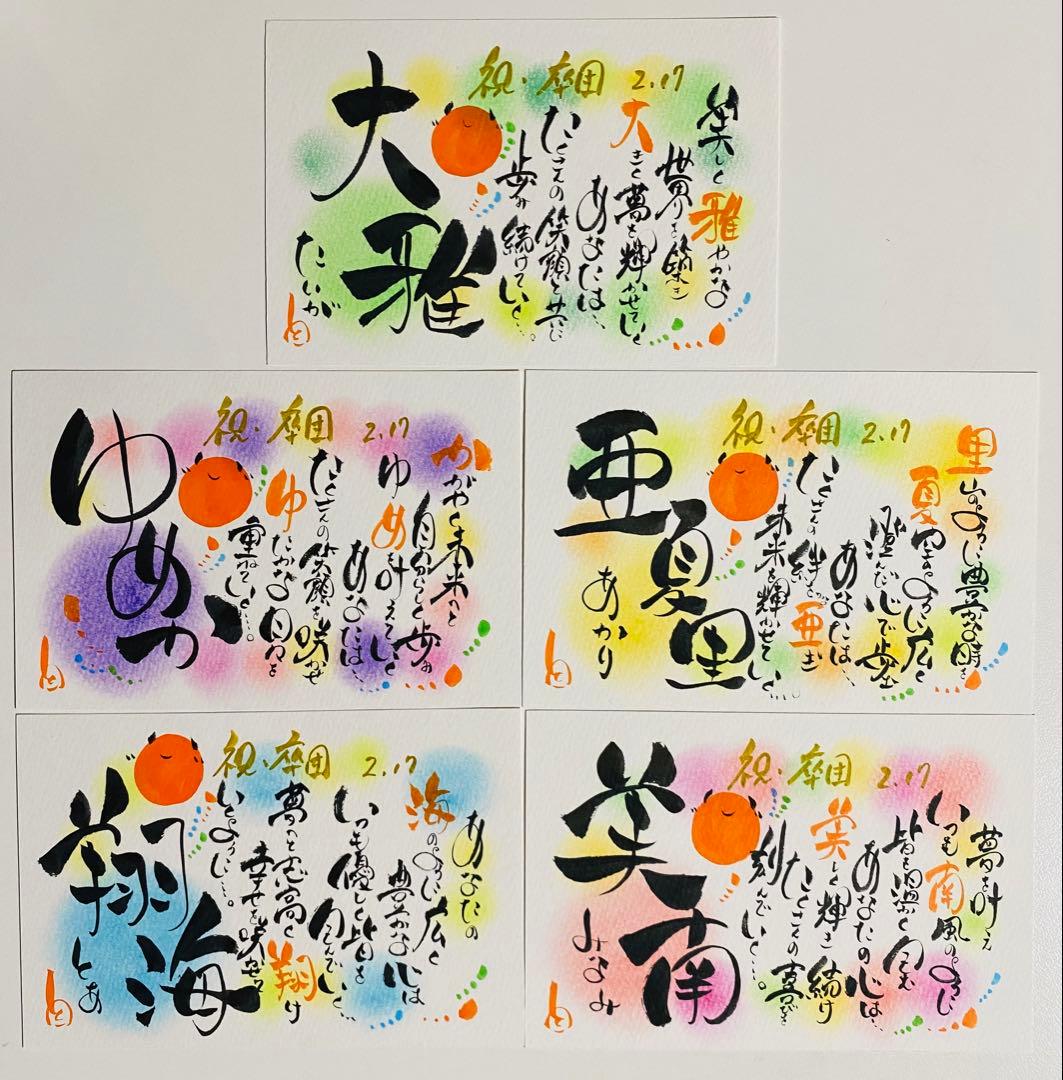 祝・卒団 2.17
大雅
たいが
美しく
雅やかな
世界を築き
大きく夢を輝かせていく
あなたは…
たくさんの笑顔と共に
歩み続けていく…。
祝・卒団 2.17
ゆめか
かがやく未来へと
自分らしく歩み
ゆめを叶えていく
あなたは…
たくさんの笑顔を咲かせ
ゆたかな日々を
重ねていく…。
祝・卒団 2.17
亜夏里
あかり
里山のように豊かな時を
夏空のように広く
澄んだ心で歩む
あなたは…
たくさんの絆を
亜
未来を輝かせていく…。
祝・卒団 2.17
翔海
とあ
あなたの
海のように広く
豊かな心は
いつも優しく皆を
包んでいく
夢へと志高く翔け
幸せを咲かせて
いくように…。
祝・卒団 2.17
美南
みなみ
夢を叶え
いつも南風のように
皆を温かく包む
あなたの心は…
美しく輝き続け
たくさんの喜びを
刻んでいく…。